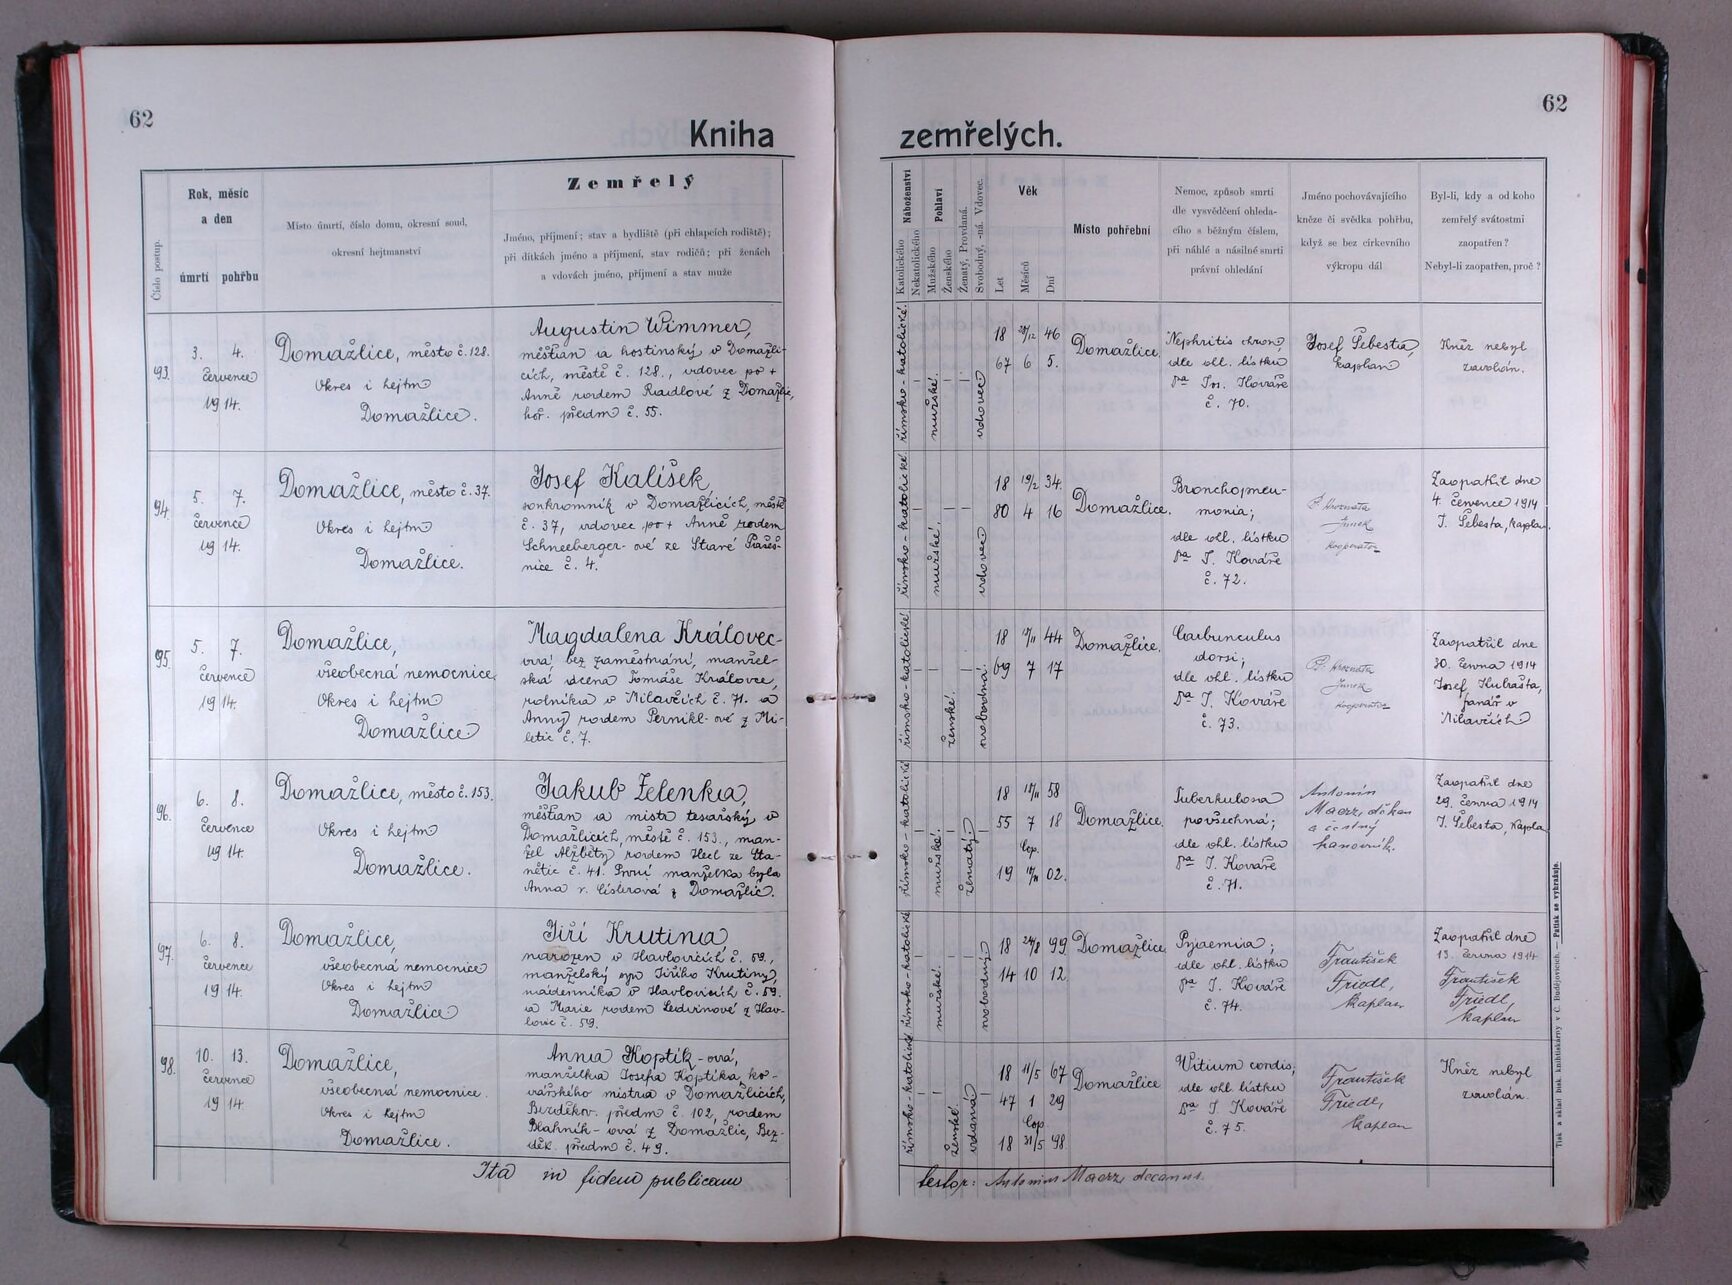 62
Kniha
Číslo postup.
Rok, měsíc
a den
úmrtí pohřbu
Místo úmrtí, číslo domu, okresní soud,
okresní hejtmanství
Zemřelý
Jméno, příjmení; stav a bydliště (při chlapcích rodiště);
při dítkách jméno a příjmení, stav rodičů; při ženách
a vdovách jméno, příjmení a stav muže
93.
3. 4.
července
1914.
Domažlice, město č. 128.
Okres i hejtm
Domažlice.
Augustin Wimmer,
měšťan a hostinský v Domažli-
cích, městě č. 128., vdovec po +
Anně rodem Raidlové z Domažlic,
hoř. předm č. 55.
94.
5. 7.
července
1914.
Domažlice, město č. 37.
Okres i hejtm
Domažlice.
Josef Kalíšek,
soukromník v Domažlicích, městě
č. 37, vdovec po + Anně rodem
Schneeberger-ové ze Staré
č. 4.
95.
5. 7.
července
1914.
Domažlice,
všeobecná nemocnice,
Okres i hejtm
Domažlice
Magdalena Královec-
ová, bez zaměstnání, manžel-
ská dcera Tomáše Královce,
rolníka v Milavčích č. 71. a
Anny rodem Pernikl-ové z Mi-
letic č. 7.
96.
6. 8.
července
1914.
Domažlice, město č. 153.
Okres i hejtm
Domažlice.
Jakub Zelenka,
měšťan a mistr tesařský v
Domažlicích, městě č. 153., man-
žel Alžběty rodem Hecl ze Sta-
nětic č. 41. První manželka byla
Anna r. Císlerová z Domažlic.
97.
6. 8.
července
1914.
Domažlice,
všeobecná nemocnice
Okres i hejtm
Domažlice
Jiří Krutina,
narozen v Havlovicích č. 59.,
manželský syn Jiřího Krutiny,
nádenníka v Havlovicích č. 59.
a Marie rodem z Hav-
lovic č. 59.
98.
10. 13.
července
1914.
Domažlice,
všeobecná nemocnice.
Okres i hejtm
Domažlice.
Anna Koptík-ová,
manželka Josefa Koptíka, ko-
vářského mistra v Domažlicích,
Bezděkov. předm č. 102, rodem
Blahník-ová z Domažlic, Bez-
děk. předm č. 49.
Ita in fidem publicam
62
zemřelých.
Náboženství
Katolického
Nekatolického
Pohlaví
Mužského
Ženského
Ženatý, Provdaná.
Svobodný, -ná. Vdovec.
Věk
Let
Měsíců
Dní
Místo pohřební
Nemoc, způsob smrti
dle vysvědčení ohleda-
cího s běžným číslem,
při náhlé a násilné smrti
právní ohledání
Jméno pochovávajícího
kněze či svědka pohřbu,
když se bez církevního
výkropu dál
Byl-li, kdy a od koho
zemřelý svátostmi
zaopatřen?
Nebyl-li zaopatřen, proč?
římsko-katolické.
mužské.
vdovec
18 28/12 46
67 6 5.
Domažlice.
Nephritis chron,
dle ohl. lístku
Dra Jos. Kováře
č. 70.
Josef Šebesta,
kaplan
Kněz nebyl
zavolán.
římsko-katolické.
mužské.
vdovec
18 19/2 34.
80 4 16
Domažlice.
Bronchopneu-
monia;
dle ohl. lístku
Dra J. Kováře
č. 72.
P. Hroznata
Junek
kooperator
Zaopatřil dne
4. července 1914
J. Šebesta, kaplan.
římsko-katolické
ženské.
svobodná.
18 18/11 44
69 7 17
Domažlice.
Carbunculus
dorsi;
dle ohl. lístku
Dra J. Kováře
č. 73.
P. Hroznata
Junek
kooperator
Zaopatřil dne
30. června 1914
Josef Kubašta,
farář v
Milavčích
římsko-katolické
mužské.
ženatý.
18 18/11 58
55 7 18
Cop.
19 02.
Domažlice.
Tuberkulosa
povšechná;
dle ohl. lístku
Dra J. Kováře
č. 71.
Antonín
Maerz, děkan
a čestný
kanovník.
Zaopatřil dne
29. června 1914
J. Šebesta, kapla
římsko-katolické
mužské.
svobodný
18 24/8 99
14 10 12.
Domažlice.
Pyaemia;
dle ohl. lístku
Dra J. Kováře
č. 74.
František
Friedl,
kaplan
Zaopatřil dne
13. června 1914
František
Friedl,
kaplan
římsko-katolické
ženské.
vdaná
18 11/5 67
47 1 29
Cop.
18 31/5 98.
Domažlice
Vitium cordis;
dle ohl. lístku
Dra J. Kováře
č. 75.
František
Friedl,
kaplan
Kněz nebyl
zavolán.
testor: Antonius Maerz, decanus.
Tisk a sklad bisk. knihtiskárny v Č. Budějovicích. — Patisk se vyhražuje.